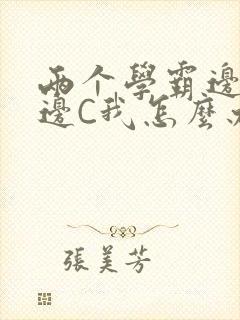 兩个學霸邊
邊C我怎麼
張美芳